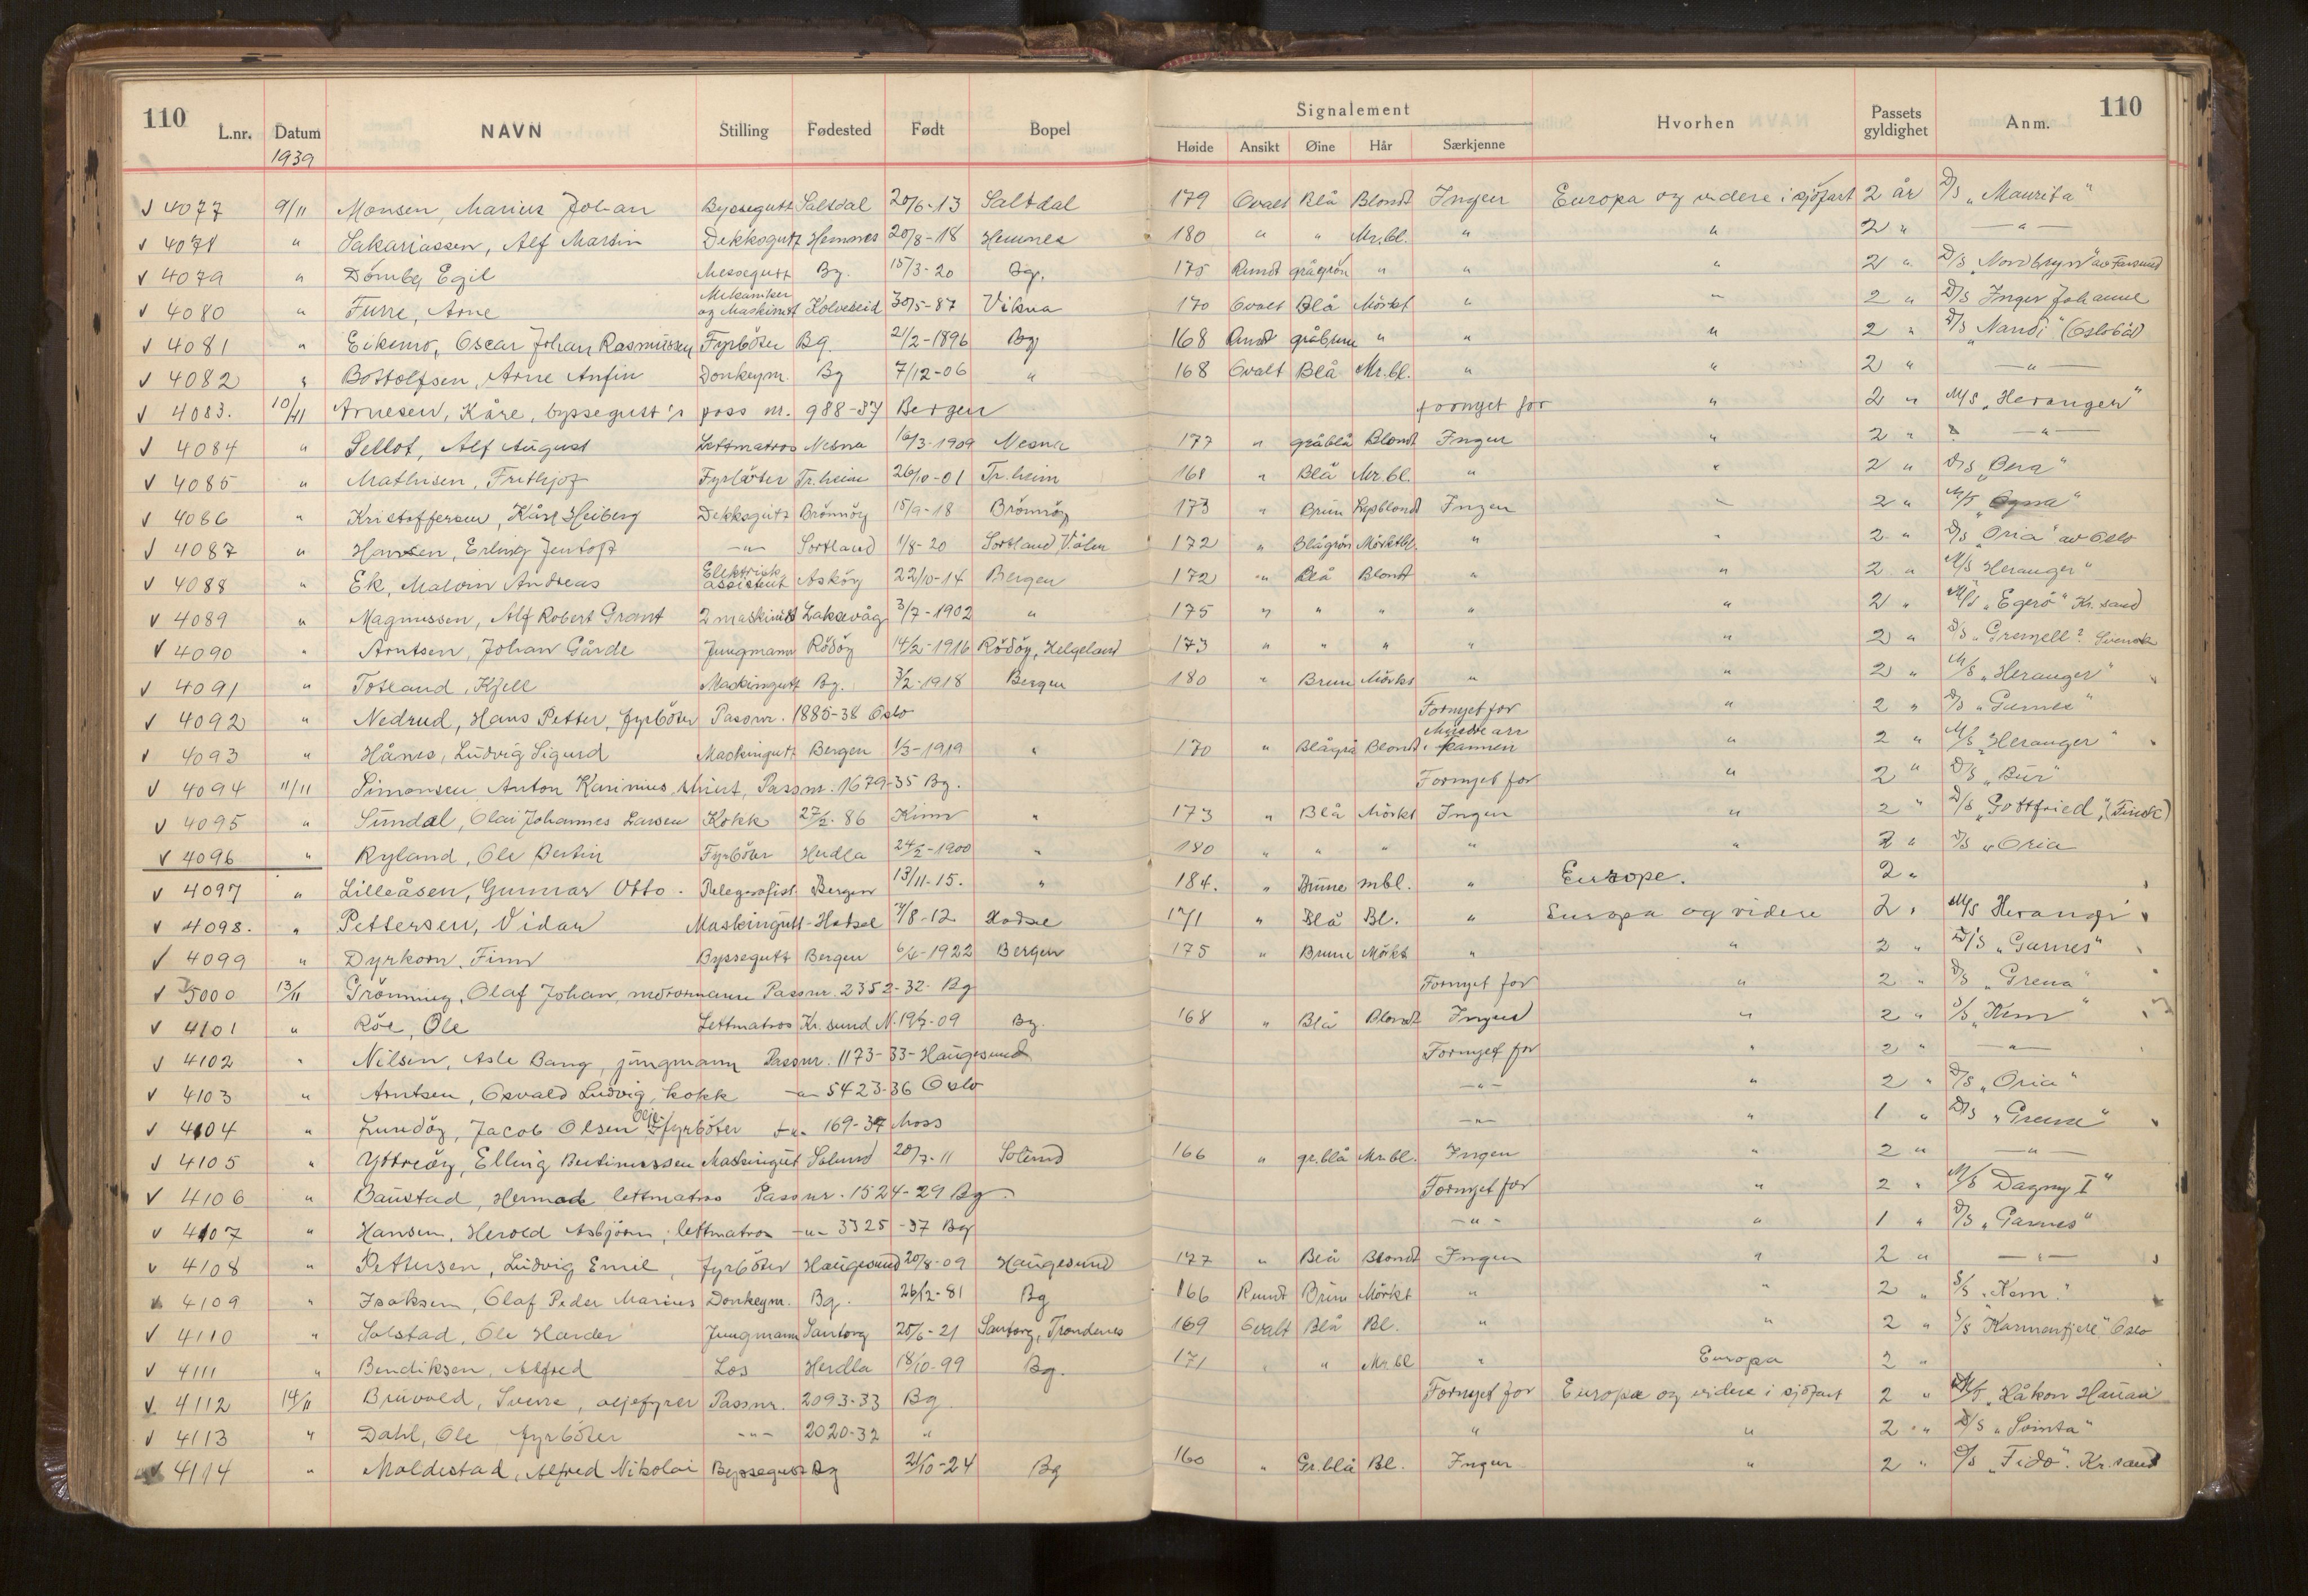 110
L.nr. Datum NAVN Stilling Fødested Født Bopel
1939
Signalement Hvorhen Passets gyldighet Anm. 110
Høide Ansikt Øine Hår Særkjenne
√ 4077 9/11 Monsen, Marius Johan Byssegutt Saltdal 20/6-13 Saltdal 179 Ovalt Blå Blondt Ingen Europa og videre i sjöfart 2 år D/s „Maurita"
√ 4078 " Sakariassen, Alf Martin Dekksgutt Hemnes 20/8-18 Hemnes 180 " " Mr.bl. " " 2 " —"—
√ 4079 " Domby Egil Messegutt Bg. 15/3-20 Bg. 175 Rundt grågrön " " " 2 " D/s „Nordhgyn" av Farsund
√ 4080 " Furre, Arne Mekaniker og Maskinist Kolvereid 30/5-87 Vikna 170 Ovalt Blå Mörkt " " 2 " D/s Inger Johanne
√ 4081 " Eikemo, Oscar Johan Rasmussen Fyrböter Bg. 21/2-1896 Bg 168 Rundt gråbrune " " " 2 " D/s „Nandi" (Oslobåt)
√ 4082 " Bottolfsen, Arne Anfin Donkeym. Bg 7/12-06 " 168 Ovalt Blå Mr.bl. " " 2 " —"—
√ 4083. 10/11 Arnesen, Kåre, byssegutt's pass nr. 988-37 Bergen fornyet for " 2 " M/s „Heranger"
√ 4084 " Sellot, Alf August Lettmatros Nesna 16/3-1909 Nesna 177 " gråblå Blondt Ingen " 2 " —"—
√ 4085 " Mathisen, Frithjof Fyrböter Tr.heim 26/10-01 Tr.heim 168 " Blå Mr.bl. " " 2 " D/s „Bera"
√ 4086 " Kristoffersen, Kåre Heiberg Dekksgutt Brönnöy 15/9-18 Brönnöy 173 " Brun Lysblondt Ingen " 2 " M/T
√ 4087 " Hansen, Erling Jentoft —"— Sortland 1/8-20 Sortland, V.ålen 172 " Blågrön Mörktbl. " " 2 " D/s „Oria" av Oslo
√ 4088 " Ek, Malvin Andreas Elektrisk assistent Asköy 22/10-14 Bergen 172 " Blå Blondt " " 2 " M/s Heranger"
√ 4089 " Magnussen, Alf Robert Grant 2 maskinist Laksevåg 3/7-1902 " 175 " " " " " 2 " M/s „Egerö" Kr.sand
√ 4090 " Arntsen, Johan Gårde Jungmann Rödöy 14/2-1916 Rödöy, Helgeland 173 " " " " " 2 " D/s Svensk
√ 4091 " Totland, Kjell Maskingutt Bg. 3/2-1918 Bergen 180 " Brun Mörkt " " 2 " M/s „Heranger"
√ 4092 " Nedrud, Hans Petter, fyrböter Passnr. 1885-38 Oslo Fornyet for " 2 " D/s „Garnes"
√ 4093 " Hånes, Ludvig Sigurd Maskingutt Bergen 1/3-1919 " 170 " Blågrå Blondt Mindre arr i pannen " 2 " M/s „Heranger"
√ 4094 11/11 Simonsen Anton Karinius, Passnr. 1679-35 Bg. Fornyet for " 2 " D/s „Bur"
√ 4095 " Sundal, Olai Johannes Larsen Kokk 27/2-86 Kinn " 173 " Blå Mörkt Ingen " 2 " D/s „Gottfried", (Finsk)
√ 4096 " Ryland, Ole Bertin Fyrböter Herdla 24/2-1900 " 180 " " " " " 2 " D/s „Oria
√ 4097 " Lilleåsen, Gunnar Otto. Telegrafist Bergen 13/11-15. " 184. " Brune mbl. " Europe. 2 "
√ 4098. " Pettersen, Vidar Maskingutt Hadsel 7/8-12 Hadsel 171 " Blå Bl. " Europa og videre 2 " M/s Herangr
√ 4099 " Dyrkorn, Finn Byssegutt Bergen 6/4-1922 Bergen 175 " Brune Mörkt " " 2 " D/s „Garnes"
√ 5000 13/11 Grönning, Olaf Johan motormann Passnr. 2352-32. Bg Fornyet for " 2 " D/s „Grena"
√ 4101 " Röe, Ole Lettmatros Kr.sund N. 19/7-09 Bg. 168 " Blå Blondt Ingen " 2 " S/s „Kem"
√ 4102 " Nilsen, Asle Bang, jungmann Passnr. 1173-33-Haugesund Fornyet for " 2 " —"—
√ 4103 " Arntsen, Osvald Ludvig, kokk —"— 5423-36 Oslo —"— " 2 " D/s „Oria"
√ 4104 " Lundöy, Jacob Olsen Oljefyrböter —"— 169-37 Moss —"— " 1 " D/s „Grena"
√ 4105 " Yttreöy, Elling Bertinussen Maskingutt Solund 20/7-11 Solund 166 " gr.blå Mr.bl. Ingen " 2 " —"—
√ 4106 " Baustad, Hermod lettmatros Passnr. 1524-29 Bg. Fornyet for " 2 " M/s Dagny I"
√ 4107 " Hansen, Herold Asbjörn, lettmatros —"— 3325-37 Bg —"— " 1 " D/s „Garnes"
√ 4108 " Pettersen, Ludvig Emil, fyrböter Haugesund 20/8-09 Haugesund 177 " Blå Blondt Ingen " 2 " —"—
√ 4109 " Isaksen, Olaf Peder Marius Donkeym. Bg. 26/12-81 Bg 166 Rundt Brun Mörkt " " 2 " S/s „Kem."
√ 4110 " Solstad, Ole Harder Jungmann Santorg 20/6-21 Santorg, Trondenes 169 Ovalt Blå Bl. " " 2 " S/s Oslo
√ 4111 " Bendiksen, Alfred Los Herdla 18/10-99 Bg. 171 " " Mr.bl " Europa 2 "
√ 4112 14/11 Bruvold, Sverre, oljefyrer Passnr. 2093-33 Bg Fornyet for Europa og videre i sjöfart 2 " M/T „Håkon Hauan
√ 4113 " Dahl, Ole fyrböter —"— 2020-32 " " " 2 " D/s „Sointa"
√ 4114 " Moldestad, Alfred Nikolai Byssegutt Bg 21/10-24 Bg 160 " Gr.blå Bl. Ingen " 2 " D/s „Fido". Kr.sand